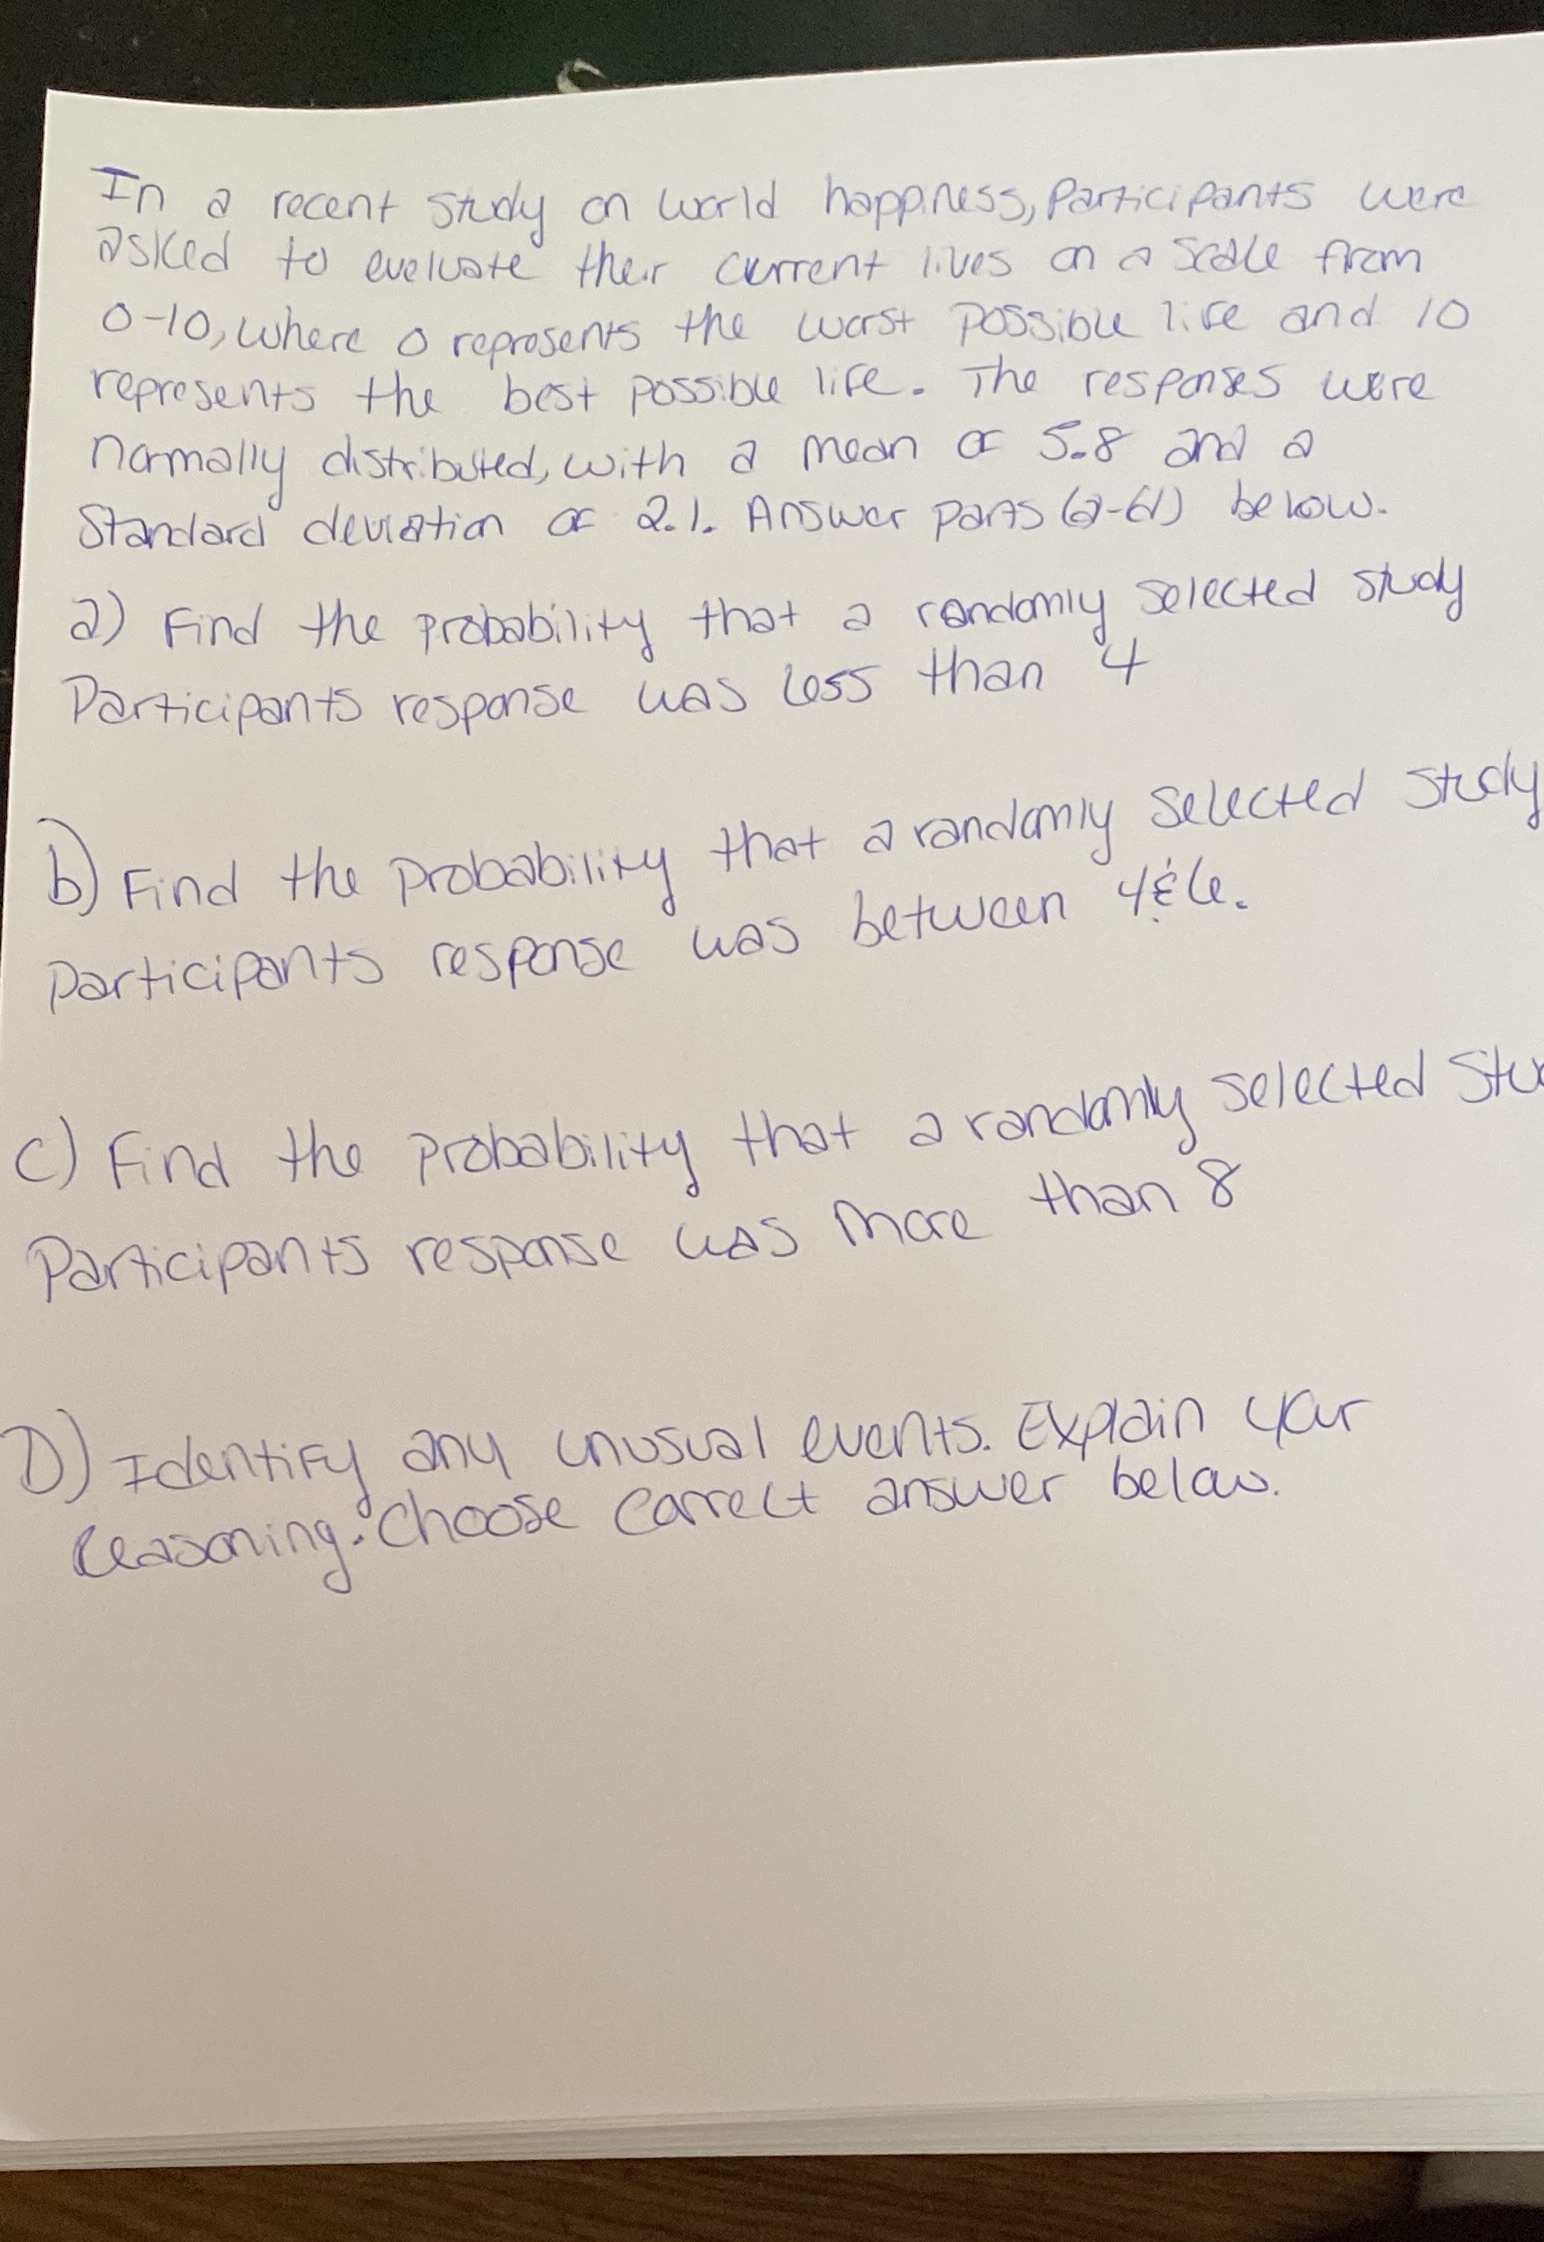 In a recent study on world happiness, Participants were
asked to eveluate their current lives on a scale from
0-10, where 0 represents the worst possible life and 10
represents the best possible life. The responses were
normally distributed, with a mean of 5.8 and a
Standard deviation of 2.1. Answer parts (a-d) below.
a) Find the probability that a randomly selected study
Participants response was less than 4
b) Find the probability that a randomly selected study
participants response was between 4 & 6.
c) Find the probability that a randomly selected Stu
Participants response was more than 8
D) Identify any unusual events. Explain your
Reasoning. Choose correct answer below.